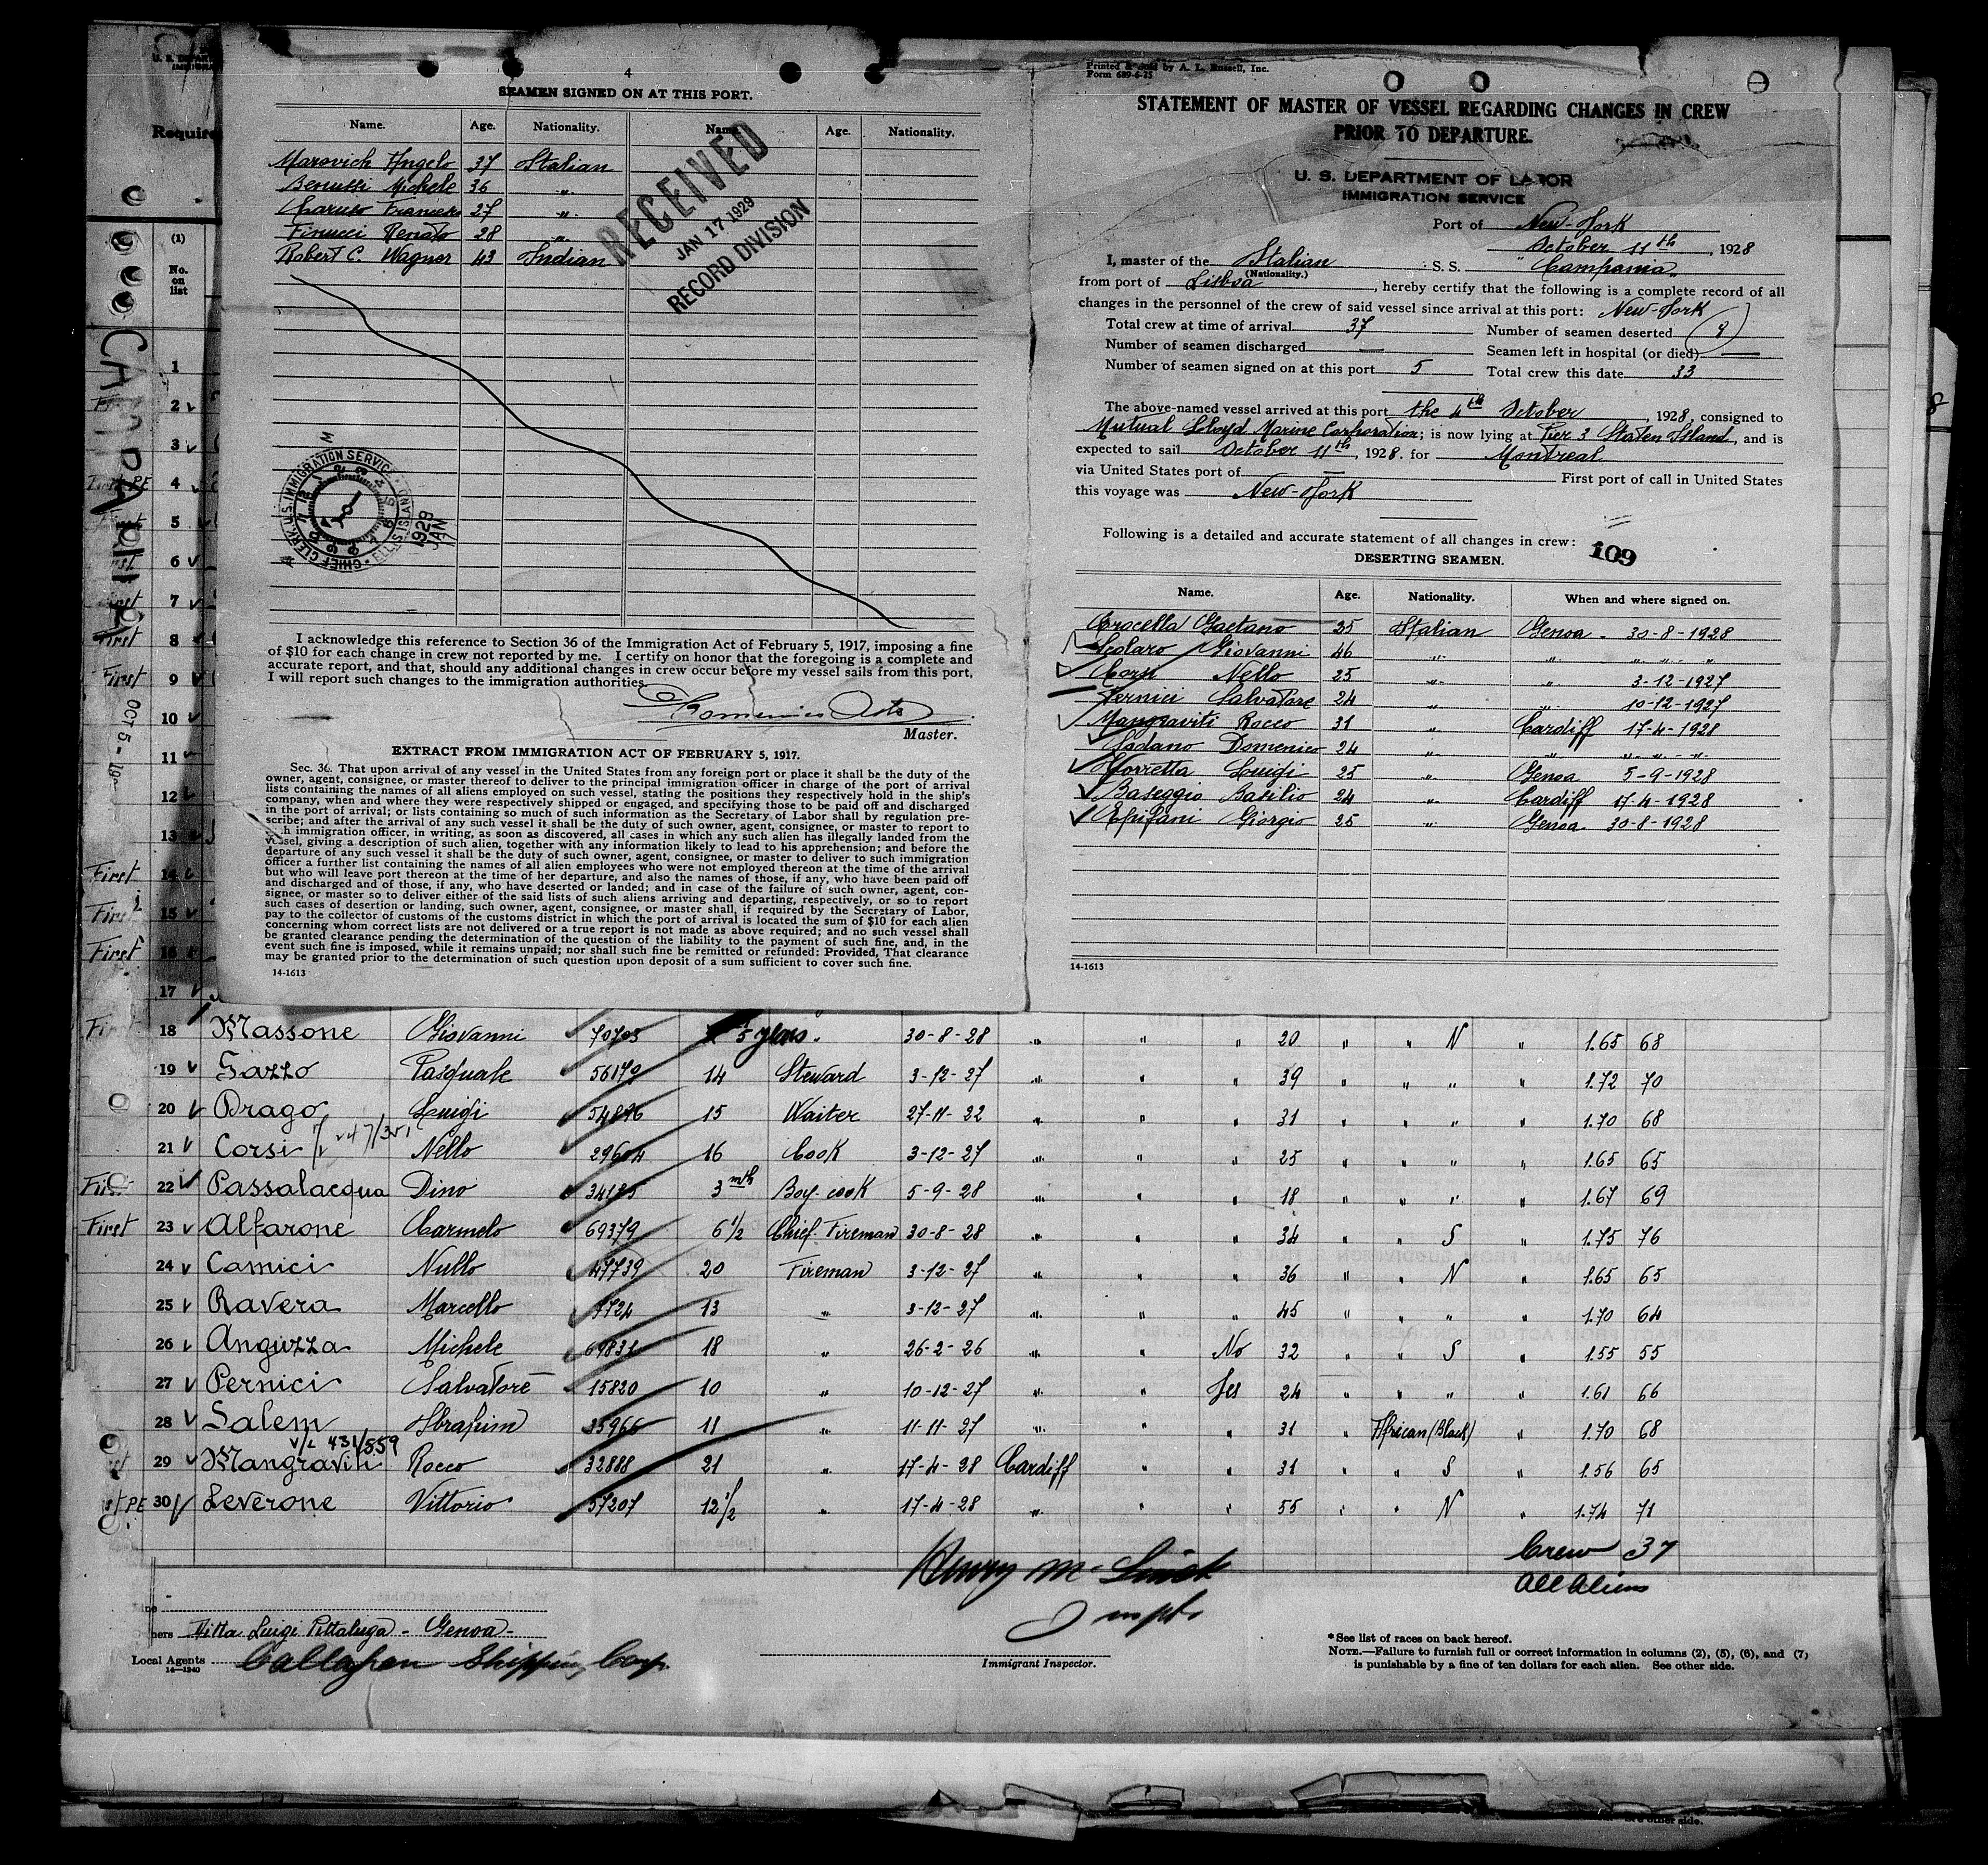 4
SEAMEN SIGNED ON AT THIS PORT.
Name. Age. Nationality. Name. Age. Nationality.
Marovich Angelo 37 Italian
Benussi Michele 36 "
Caruso Francesco 27 "
Finucci Renato 28 "
Robert C. Wagner 43 Indian
RECEIVED
JAN 17 1929
RECORD DIVISION
CHIEF CLERK, U.S. IMMIGRATION SERVICE
ELLIS ISLAND
1929
JAN
I acknowledge this reference to Section 36 of the Immigration Act of February 5, 1917, imposing a fine
of $10 for each change in crew not reported by me. I certify on honor that the foregoing is a complete and
accurate report, and that, should any additional changes in crew occur before my vessel sails from this port,
I will report such changes to the immigration authorities.
Master.
EXTRACT FROM IMMIGRATION ACT OF FEBRUARY 5, 1917.
Sec. 36. That upon arrival of any vessel in the United States from any foreign port or place it shall be the duty of the
owner, agent, consignee, or master thereof to deliver to the principal immigration officer in charge of the port of arrival
lists containing the names of all aliens employed on such vessel, stating the positions they respectively hold in the ship's
company, when and where they were respectively shipped or engaged, and specifying those to be paid off and discharged
in the port of arrival; or lists containing so much of such information as the Secretary of Labor shall by regulation pre-
scribe; and after the arrival of any such vessel it shall be the duty of such owner, agent, consignee, or master to report to
such immigration officer, in writing, as soon as discovered, all cases in which any such alien has illegally landed from the
vessel, giving a description of such alien, together with any information likely to lead to his apprehension; and before the
departure of any such vessel it shall be the duty of such owner, agent, consignee, or master to deliver to such immigration
officer a further list containing the names of all alien employees who were not employed thereon at the time of the arrival
but who will leave port thereon at the time of her departure, and also the names of those, if any, who have been paid off
and discharged and of those, if any, who have deserted or landed; and in case of the failure of such owner, agent, con-
signee, or master so to deliver either of the said lists of such aliens arriving and departing, respectively, or so to report
such cases of desertion or landing, such owner, agent, consignee, or master shall, if required by the Secretary of Labor,
pay to the collector of customs of the customs district in which the port of arrival is located the sum of $10 for each alien
concerning whom correct lists are not delivered or a true report is not made as above required; and no such vessel shall
be granted clearance pending the determination of the question of the liability to the payment of such fine, and, in the
event such fine is imposed, while it remains unpaid; nor shall such fine be remitted or refunded: Provided, That clearance
may be granted prior to the determination of such question upon deposit of a sum sufficient to cover such fine.
14-1613
Printed & Sold by A. L. Russell, Inc.
Form 689-6-25
STATEMENT OF MASTER OF VESSEL REGARDING CHANGES IN CREW
PRIOR TO DEPARTURE.
U. S. DEPARTMENT OF LABOR
IMMIGRATION SERVICE
Port of New-York
October 11th, 1928
I, master of the Italian S. S. "Campania"
(Nationality.)
from port of Lisboa, hereby certify that the following is a complete record of all
changes in the personnel of the crew of said vessel since arrival at this port: New-York
Total crew at time of arrival 37 Number of seamen deserted 9
Number of seamen discharged — Seamen left in hospital (or died) —
Number of seamen signed on at this port 5 Total crew this date 33
The above-named vessel arrived at this port the 4th October, 1928, consigned to
Mutual Lloyd Marine Corporation; is now lying at Pier 3 Staten Island, and is
expected to sail October 11th, 1928. for Montreal
via United States port of — First port of call in United States
this voyage was New-York
Following is a detailed and accurate statement of all changes in crew:
109
DESERTING SEAMEN.
Name. Age. Nationality. When and where signed on.
Crocella Gaetano 35 Italian Genoa - 30-8-1928
Scolaro Giovanni 46 " " " " "
Corsi Nello 25 " " 3-12-1927
Pernici Salvatore 24 " " 10-12-1927
Mangraviti Rocco 31 " Cardiff 17-4-1928
Sadano Domenico 24 " " " " "
Morretta Luigi 25 " Genoa 5-9-1928
Baseggio Basilio 24 " Cardiff 17-4-1928
Epifani Giorgio 25 " Genoa 30-8-1928
14-1613
Require
(1)
No.
on
list
CAMPANIA
OCT 5 -
1
2
3
4
5
6
7
First 8
First 9
10
11
12
13
First 14
First 15
First 16
17
First 18 Massone Giovanni 70703 5 years " 30-8-28 " " " 20 " " N " 1.65 68
19 Gazzo Pasquale 56179 14 Steward 3-12-27 " " " 39 " " " " 1.72 70
20 Drago Luigi 54896 15 Waiter 27-11-22 " " " 31 " " " " 1.70 68
21 Corsi Nello 29604 16 Cook 3-12-27 " " " 25 " " " " 1.65 65
First 22 Passalacqua Dino 34135 3 mth Boy-cook 5-9-28 " " " 18 " " " " 1.67 69
First 23 Alfarone Carmelo 69379 6 1/2 Chief Fireman 30-8-28 " " " 34 " " S " 1.75 76
24 Camici Nullo 47739 20 Fireman 3-12-27 " " " 36 " " N " 1.65 65
25 Ravera Marcello 7724 13 " 3-12-27 " " " 45 " " " " 1.70 64
26 Anguzza Michele 69831 18 " 26-2-26 " " No 32 " " S " 1.55 55
27 Pernici Salvatore 15820 10 " 10-12-27 " " Yes 24 " " " " 1.61 66
28 Salem Ibrahim 35966 11 " 11-11-27 " " " 31 " African (Black) " 1.70 68
V/L 431/559
29 Mangraviti Rocco 32888 21 " 17-4-28 Cardiff " " 31 " " S " 1.56 65
PE 30 Leverone Vittorio 57207 12 1/2 " 17-4-28 " " " 55 " " N " 1.74 71
Crew 37
All Aliens
Ditta Luigi Pittaluga - Genoa -
Local Agents Callahan Shipping Corp.
14-1240
Immigrant Inspector.
* See list of races on back hereof.
NOTE.—Failure to furnish full or correct information in columns (2), (5), (6), and (7)
is punishable by a fine of ten dollars for each alien. See other side.
other side.